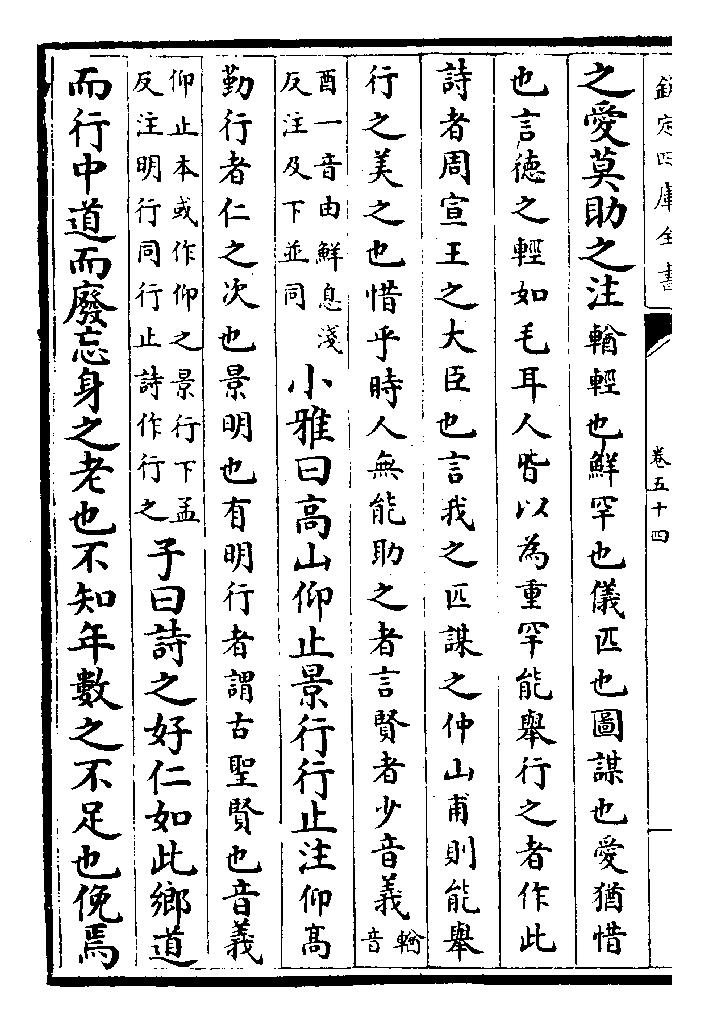 欽定四庫全書
卷五十四
之愛莫助之注輶輕也鮮罕也儀匹也圖謀也愛猶惜
也言德之輕如毛耳人皆以為重罕能舉行之者作此
詩者周宣王之大臣也言我之匹謀之仲山甫則能舉
行之美之也惜乎時人無能助之者言賢者少音義輶音
酉一音由鮮息淺反注及下並同小雅曰高山仰止景行行止注仰高
勤行者仁之次也景明也有明行者謂古聖賢也音義
仰止本或作仰之景行下孟反注明行同行止詩作行之子曰詩之好仁如此鄉道
而行中道而廢忘身之老也不知年數之不足也俛焉